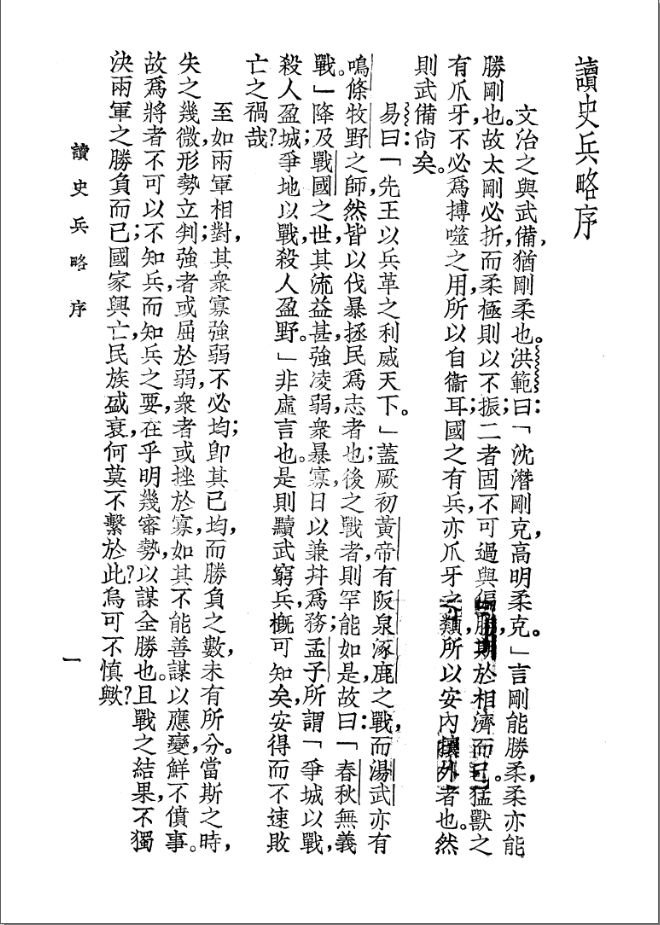 讀史兵略序
文治之與武備，猶剛柔也。洪範曰：「沈潛剛克，高明柔克。」言剛能勝柔，柔亦能
勝剛也。故太剛必折，而柔極則以不振；二者固不可過與偏勝，期於相濟而已。猛獸之
有爪牙，不必爲搏噬之用，所以自衞耳；國之有兵，亦爪牙之類，所以安內攘外者也。然
則武備尙矣。
易曰：「先王以兵革之利威天下。」蓋厥初黃帝有阪泉涿鹿之戰，而湯武亦有
鳴條牧野之師，然皆以伐暴拯民爲志者也；後之戰者，則罕能如是，故曰：「春秋無義
戰。」降及戰國之世，其流益甚，強凌弱，衆暴寡，日以兼幷爲務；孟子所謂「爭城以戰，
殺人盈城，爭地以戰，殺人盈野。」非虛言也。是則黷武窮兵，槪可知矣，安得而不速敗
亡之禍哉？
至如兩軍相對，其衆寡強弱，不必均；卽其已均，而勝負之數，未有所分。當斯之時，
失之幾微，形勢立判；強者或屈於弱，衆者或挫於寡，如其不能善謀以應變，鮮不僨事。
故爲將者不可以不知兵，而知兵之要，在乎明幾審勢，以謀全勝也。且戰之結果，不獨
決兩軍之勝負而已，國家興亡，民族盛衰，何莫不繫於此？烏可不慎歟？
讀史兵略序
一